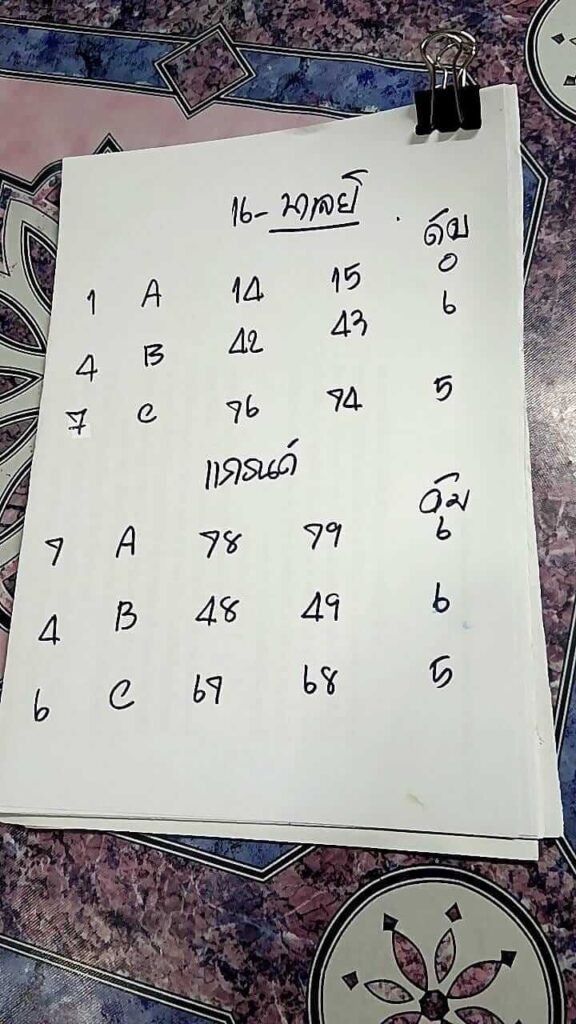 16- มาเลย์
ดับ
1 A 14 15 0
4 B 42 43 6
7 C 76 74 5
แกรนด์
ดับ
7 A 78 79 6
4 B 48 49 6
6 C 67 68 5